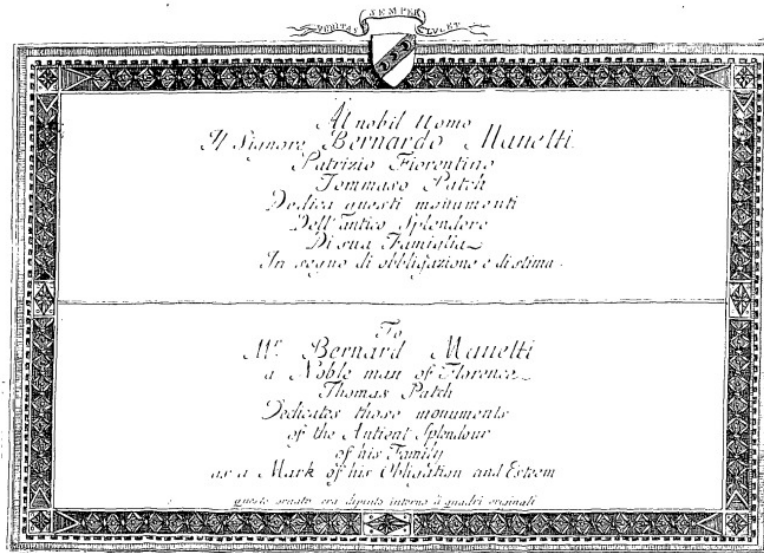 VERITAS SEMPER LUCET
Al nobil Uomo
Il Signore Bernardo Manetti
Patrizio Fiorentino
Tommaso Patch
Dedica questi monumenti
Dell'antico Splendore
Di sua Famiglia
In segno di obbligazione e di stima.
To
Mr. Bernard Manetti
a Noble man of Florence
Thomas Patch
Dedicates those monuments
of the Antient Splendour
of his Family
as a Mark of his Obligation and Esteem
questo ornato era dipinto intorno à quadri originali